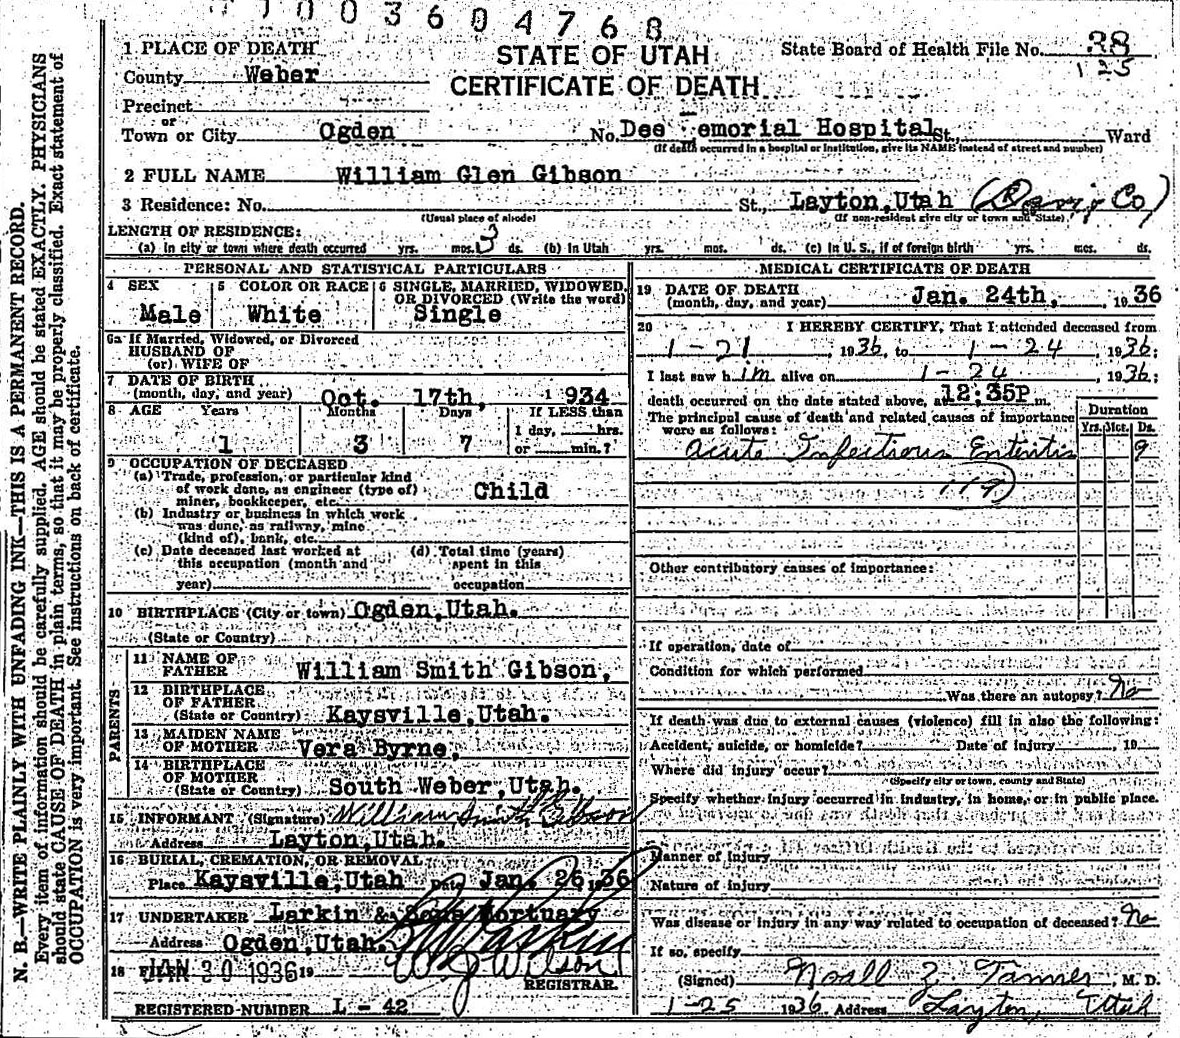 0 0 3 6 0 4 7 6 8
STATE OF UTAH
CERTIFICATE OF DEATH
State Board of Health File No. 38
125
1 PLACE OF DEATH
County Weber
Precinct
or
Town or City Ogden No. Dee emorial Hospital St., Ward
(If death occurred in a hospital or institution, give its NAME instead of street and number)
2 FULL NAME William Glen Gibson
3 Residence: No. St., Layton, Utah (Davis Co,)
(Usual place of abode) (If non-resident give city or town and State)
LENGTH OF RESIDENCE:
(a) In city or town where death occurred yrs. mos. 3 ds. (b) In Utah yrs. mos. ds. (c) In U. S., if of foreign birth yrs. mos. ds.
PERSONAL AND STATISTICAL PARTICULARS
4 SEX Male
5 COLOR OR RACE White
6 SINGLE, MARRIED, WIDOWED, OR DIVORCED (Write the word) Single
6a If Married, Widowed, or Divorced
HUSBAND OF
(or) WIFE OF
7 DATE OF BIRTH
(month, day, and year) Oct. 17th, 1 934
8 AGE Years Months Days If LESS than
1 3 7 1 day, hrs.
or min.?
9 OCCUPATION OF DECEASED
(a) Trade, profession, or particular kind
of work done, as engineer (type of)
miner, bookkeeper, etc. Child
(b) Industry or business in which work
was done, as railway, mine
(kind of), bank, etc.
(c) Date deceased last worked at
this occupation (month and
year)
(d) Total time (years)
spent in this
occupation
10 BIRTHPLACE (City or town) Ogden, Utah.
(State or Country)
PARENTS
11 NAME OF
FATHER William Smith Gibson,
12 BIRTHPLACE
OF FATHER
(State or Country) Kaysville, Utah.
13 MAIDEN NAME
OF MOTHER Vera Byrne,
14 BIRTHPLACE
OF MOTHER
(State or Country) South Weber, Utah.
15 INFORMANT (Signature) William Smith Gibson
Address Layton, Utah.
16 BURIAL, CREMATION, OR REMOVAL
Place Kaysville, Utah Date Jan. 26, 1936
17 UNDERTAKER Larkin & Sons Mortuary
Address Ogden, Utah.
18 FILED JAN 30 1936 19
REGISTRAR.
REGISTERED NUMBER L - 42
MEDICAL CERTIFICATE OF DEATH
19 DATE OF DEATH
(month, day, and year) Jan. 24th, 1936
20 I HEREBY CERTIFY, That I attended deceased from
1-21, 1936, to 1-24, 1936;
I last saw him alive on 1-24, 1936;
death occurred on the date stated above, at 12:35P m.
The principal cause of death and related causes of importance
were as follows:
Duration
Yrs. Mos. Ds.
Acute Infectious Enteritis 9
119)
Other contributory causes of importance:
If operation, date of
Condition for which performed
Was there an autopsy? No
If death was due to external causes (violence) fill in also the following:
Accident, suicide, or homicide? Date of injury , 19
Where did injury occur?
(Specify city or town, county and State)
Specify whether injury occurred in industry, in home, or in public place.
Manner of injury
Nature of injury
Was disease or injury in any way related to occupation of deceased? No
If so, specify
(Signed) Noall Z. Tanner, M. D.
1-25 1936 Address Layton, Utah
N. B.—WRITE PLAINLY WITH UNFADING INK—THIS IS A PERMANENT RECORD.
Every item of information should be carefully supplied. AGE should be stated EXACTLY. PHYSICIANS
should state CAUSE OF DEATH in plain terms, so that it may be properly classified. Exact statement of
OCCUPATION is very important. See instructions on back of certificate.